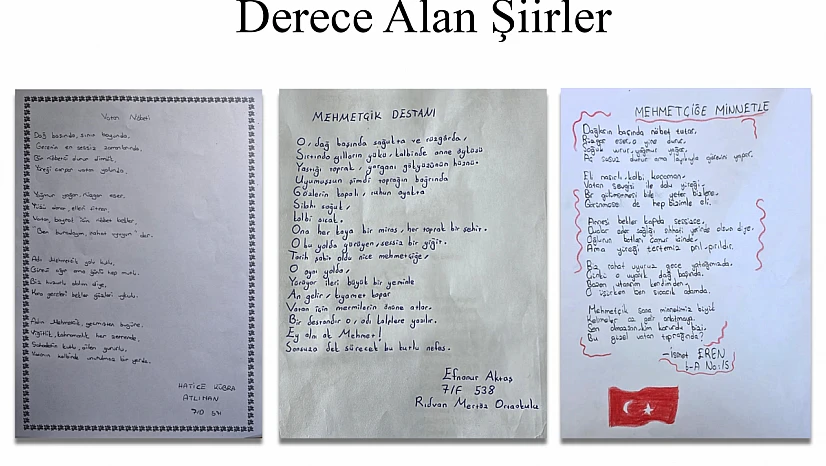 Derece Alan Şiirler
Vatan Nöbeti
Dağ başında, sınır boyunda,
Gecenin en sessiz zamanlarında,
Bir nöbetçi durur dimdik,
Yüreği çarpar vatan yolunda.
Yağmur yağar, rüzgar eser,
Vatan, bayrak için nöbet bekler,
"Ben buradayım, rahat uyuyun" der.
Adı Mehmetçik
Biz huzurla uyuruz diye,
Kara geceleri bekler gözleri
Adın Mehmetçik, geçmişten bugüne,
Yiğitlik, kahramanlık her zerrende,
HATİCE KÜBRA
ATLIHAN
7/D 571
MEHMETÇİK DESTANI
O, dağ başında soğukta ve rüzgarda,
Sırtında yılların yükü, kalbinde anne öyküsü
Yastığı toprak, yorganı gökyüzünün hüznü.
Uyumuşsun şimdi toprağın bağrında
Gözlerin kapalı, ruhun ayakta
Silahı soğuk,
kalbi sıcak.
Ona her kaya bir miras, her toprak bir şehir.
O bu yolda yürüyen, sessiz bir yiğit.
Tarih şahit oldu nice mehmetçiğe,
O aynı yolda,
Yürüyor ileri büyük bir yeminle
An gelir, kıyamet kopar
Vatan için mermilerin önüne atlar.
Bir destandır o, adı kalplere yazılır.
Ey alnı ak Mehmet!
Sonsuza dek sürecek bu kutlu nefes.
Efnanur Aktaş
7/F 538
Rıdvan Mertöz Ortaokulu
MEHMETÇİĞE MİNNETLE
Dağların başında nöbet tutar,
Rüzgar eser, o yine durur.
Soğuk vurur, yağmur yağar,
Aç susuz durur ama layıkıyla görevini yapar.
Eli nasırlı, kalbi kocaman,
Vatan sevgisi ile dolu yüreği.
Bir gülümsemesi bile yeter bizlere,
Görünmese de hep bizimle eli.
Annesi bekler kapıda sessizce,
Dualar eder sağlığı sıhhati yerinde olsun diye.
Oğlunun botları çamur içinde,
Ama yüreği tertemiz pırıl-pırıldır.
Biz rahat uyuruz gece yatağımızda,
Çünkü o uyanık dağ başında.
Bazen utanırım kendimden,
O üşürken ben sıcacık odamda.
Mehmetçik sana minnetimiz büyük
Kelimeler az gelir anlatmaya.
Sen olmazsan, kim korurdu bizi,
Bu güzel vatan toprağında?
-İsmet EREN
No:15